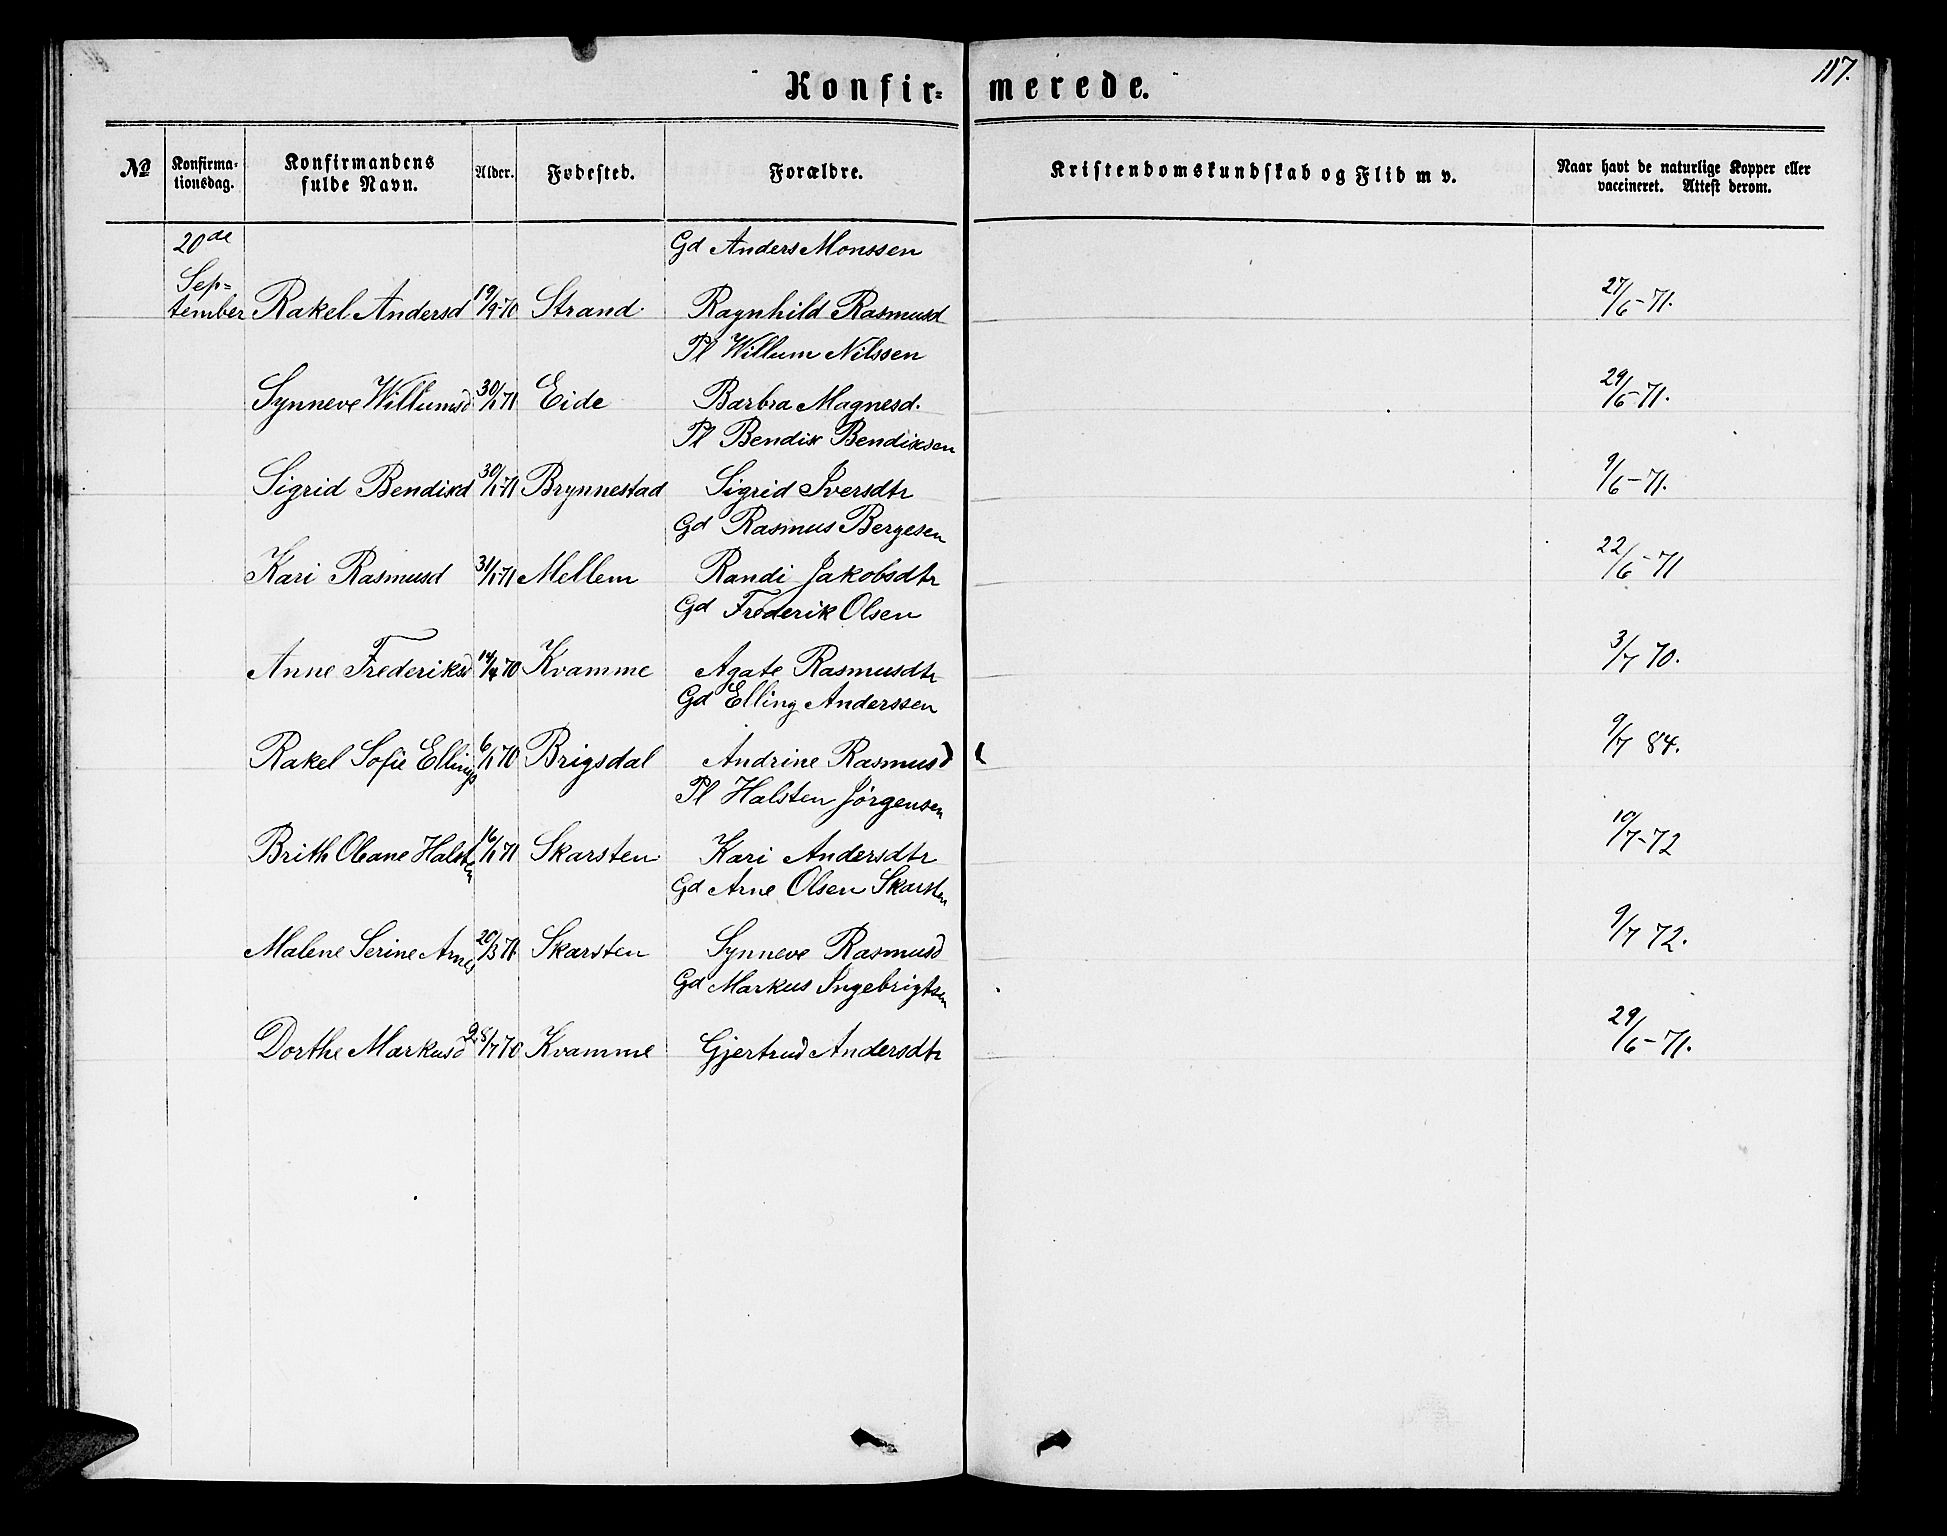 117.
Konfir- merede.
No Konfirma- tionsdag. Konfirmandens fulde Navn. Alder. Fødested. Forældre. Kristendomskundskab og Flid m v. Naar havt de naturlige Kopper eller vaccineret. Attest derom.
20de Gd Anders Monssen
Sep-
tember Rakel Andersd 19/9-70 Strand Ragnhild Rasmusd 27/6-71.
Pl Willum Nilssen
Synneve Willumsd 30/1 71 Eide Barbra Magnesd. 29/6-71.
Pl Bendik Bendiksen
Sigrid Bendiksd 30/1-71 Brynnestad Sigrid Iversdtr 9/6-71.
Gd Rasmus Bergesen
Kari Rasmusd 31/1 71 Mellem Randi Jakobsdtr 22/6-71
Gd Frederik Olsen
Anne Frederiksd 14/4 70 Kvamme Agate Rasmusdtr 3/7 70.
Gd Elling Anderssen
Rakel Sofie Ellings 6/1 70 Brigsdal Andrine Rasmusd 9/7 84.
Pl Halsten Jørgensen
Brith Oleane Halsten 16/1 71 Skarsten Kari Andersdtr 10/7-72
Gd Arne Olsen Skarsten
Malene Serine Arnes 20/3 71 Skarsten Synneve Rasmusd 9/7 72.
Gd Markus Ingebrigtsen
Dorthe Markusd 28/7 70 Kvamme Gjertrud Andersdtr 29/6-71.